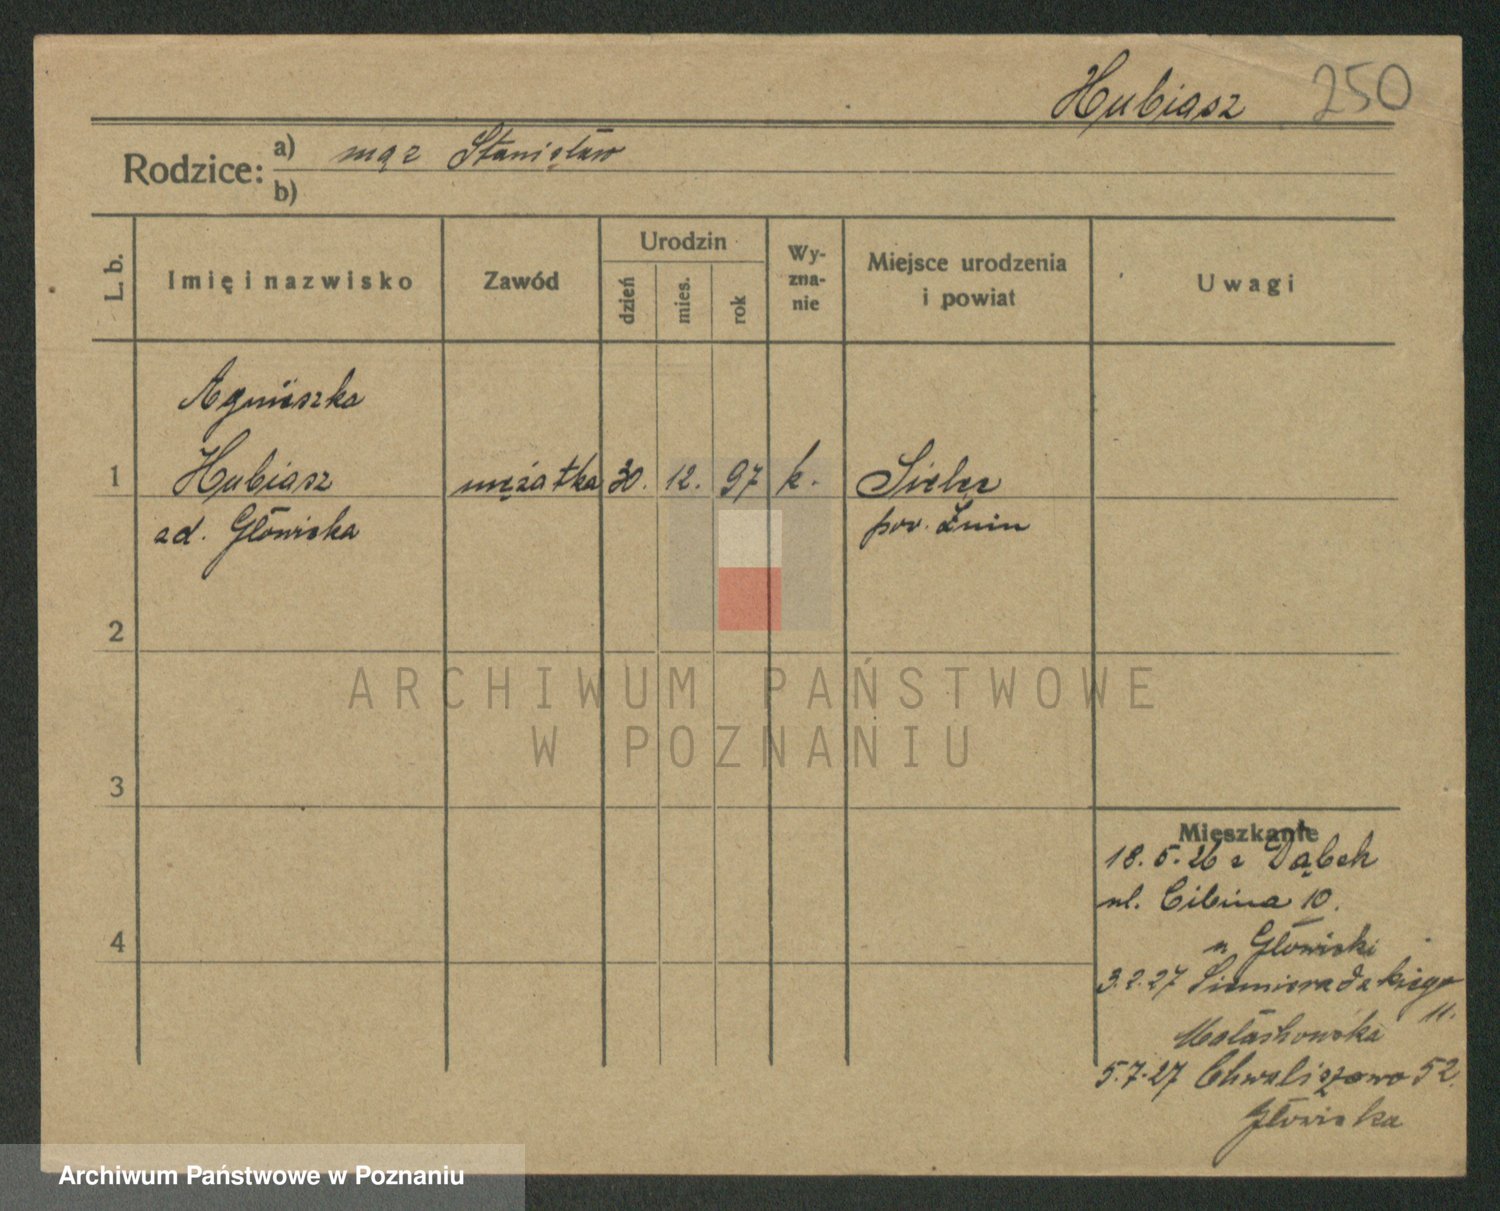 Hubiasz 250
Rodzice: a) mąż Stanisław
b)
L. b. Imię i nazwisko Zawód Urodzin dzień mies. rok Wy-zna-nie Miejsce urodzenia i powiat Uwagi
Agnieszka
1 Hubiasz mężatka 30. 12. 97 k. Sielec
zd. Główicka pow. Żnin
2
ARCHIWUM PAŃSTWOWE
W POZNANIU
3
Mieszkanie
18.5.26 z Dąbek
ul. Cibina 10.
4
u Główicki
3.2.27 Siemieradzkiego
11.
Małachowska
5.7.27 Chwaliszewo 52.
Główicka
Archiwum Państwowe w Poznaniu